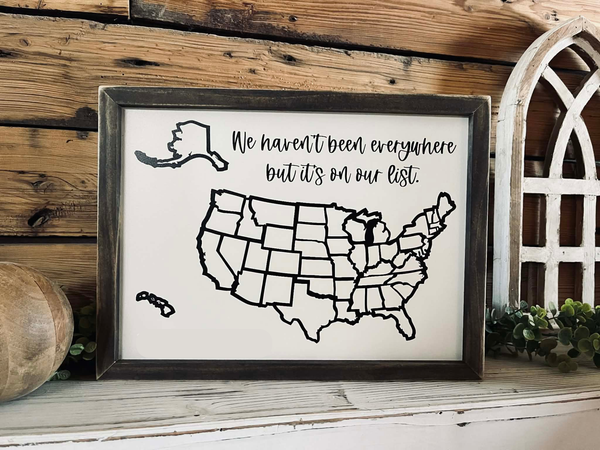 We haven't been everywhere
but it's on our list.